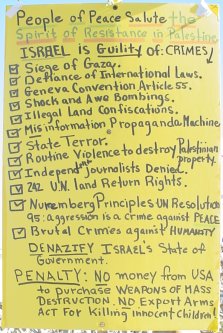 People of Peace Salute the
Spirit of Resistance in Palestine
ISRAEL is Guilty of: CRIMES
Siege of Gaza.
Defiance of International Laws.
Geneva Convention Article 55.
Shock and Awe Bombings.
Illegal Land Confiscations.
Misinformation Propaganda Machine
State Terror.
Routine Violence to destroy Palestinian
property.
Independent journalists Denied.
242 U.N. land Return Rights.
Nuremberg Principles UN Resolution
95: aggression is a crime against PEACE
Brutal Crimes against HUMANITY
DENAZIFY ISRAEL'S STATE OF
Government.
PENALTY: NO money from USA
to purchase WEAPONS OF MASS
DESTRUCTION. NO Export Arms
ACT For Killing innocent Children!